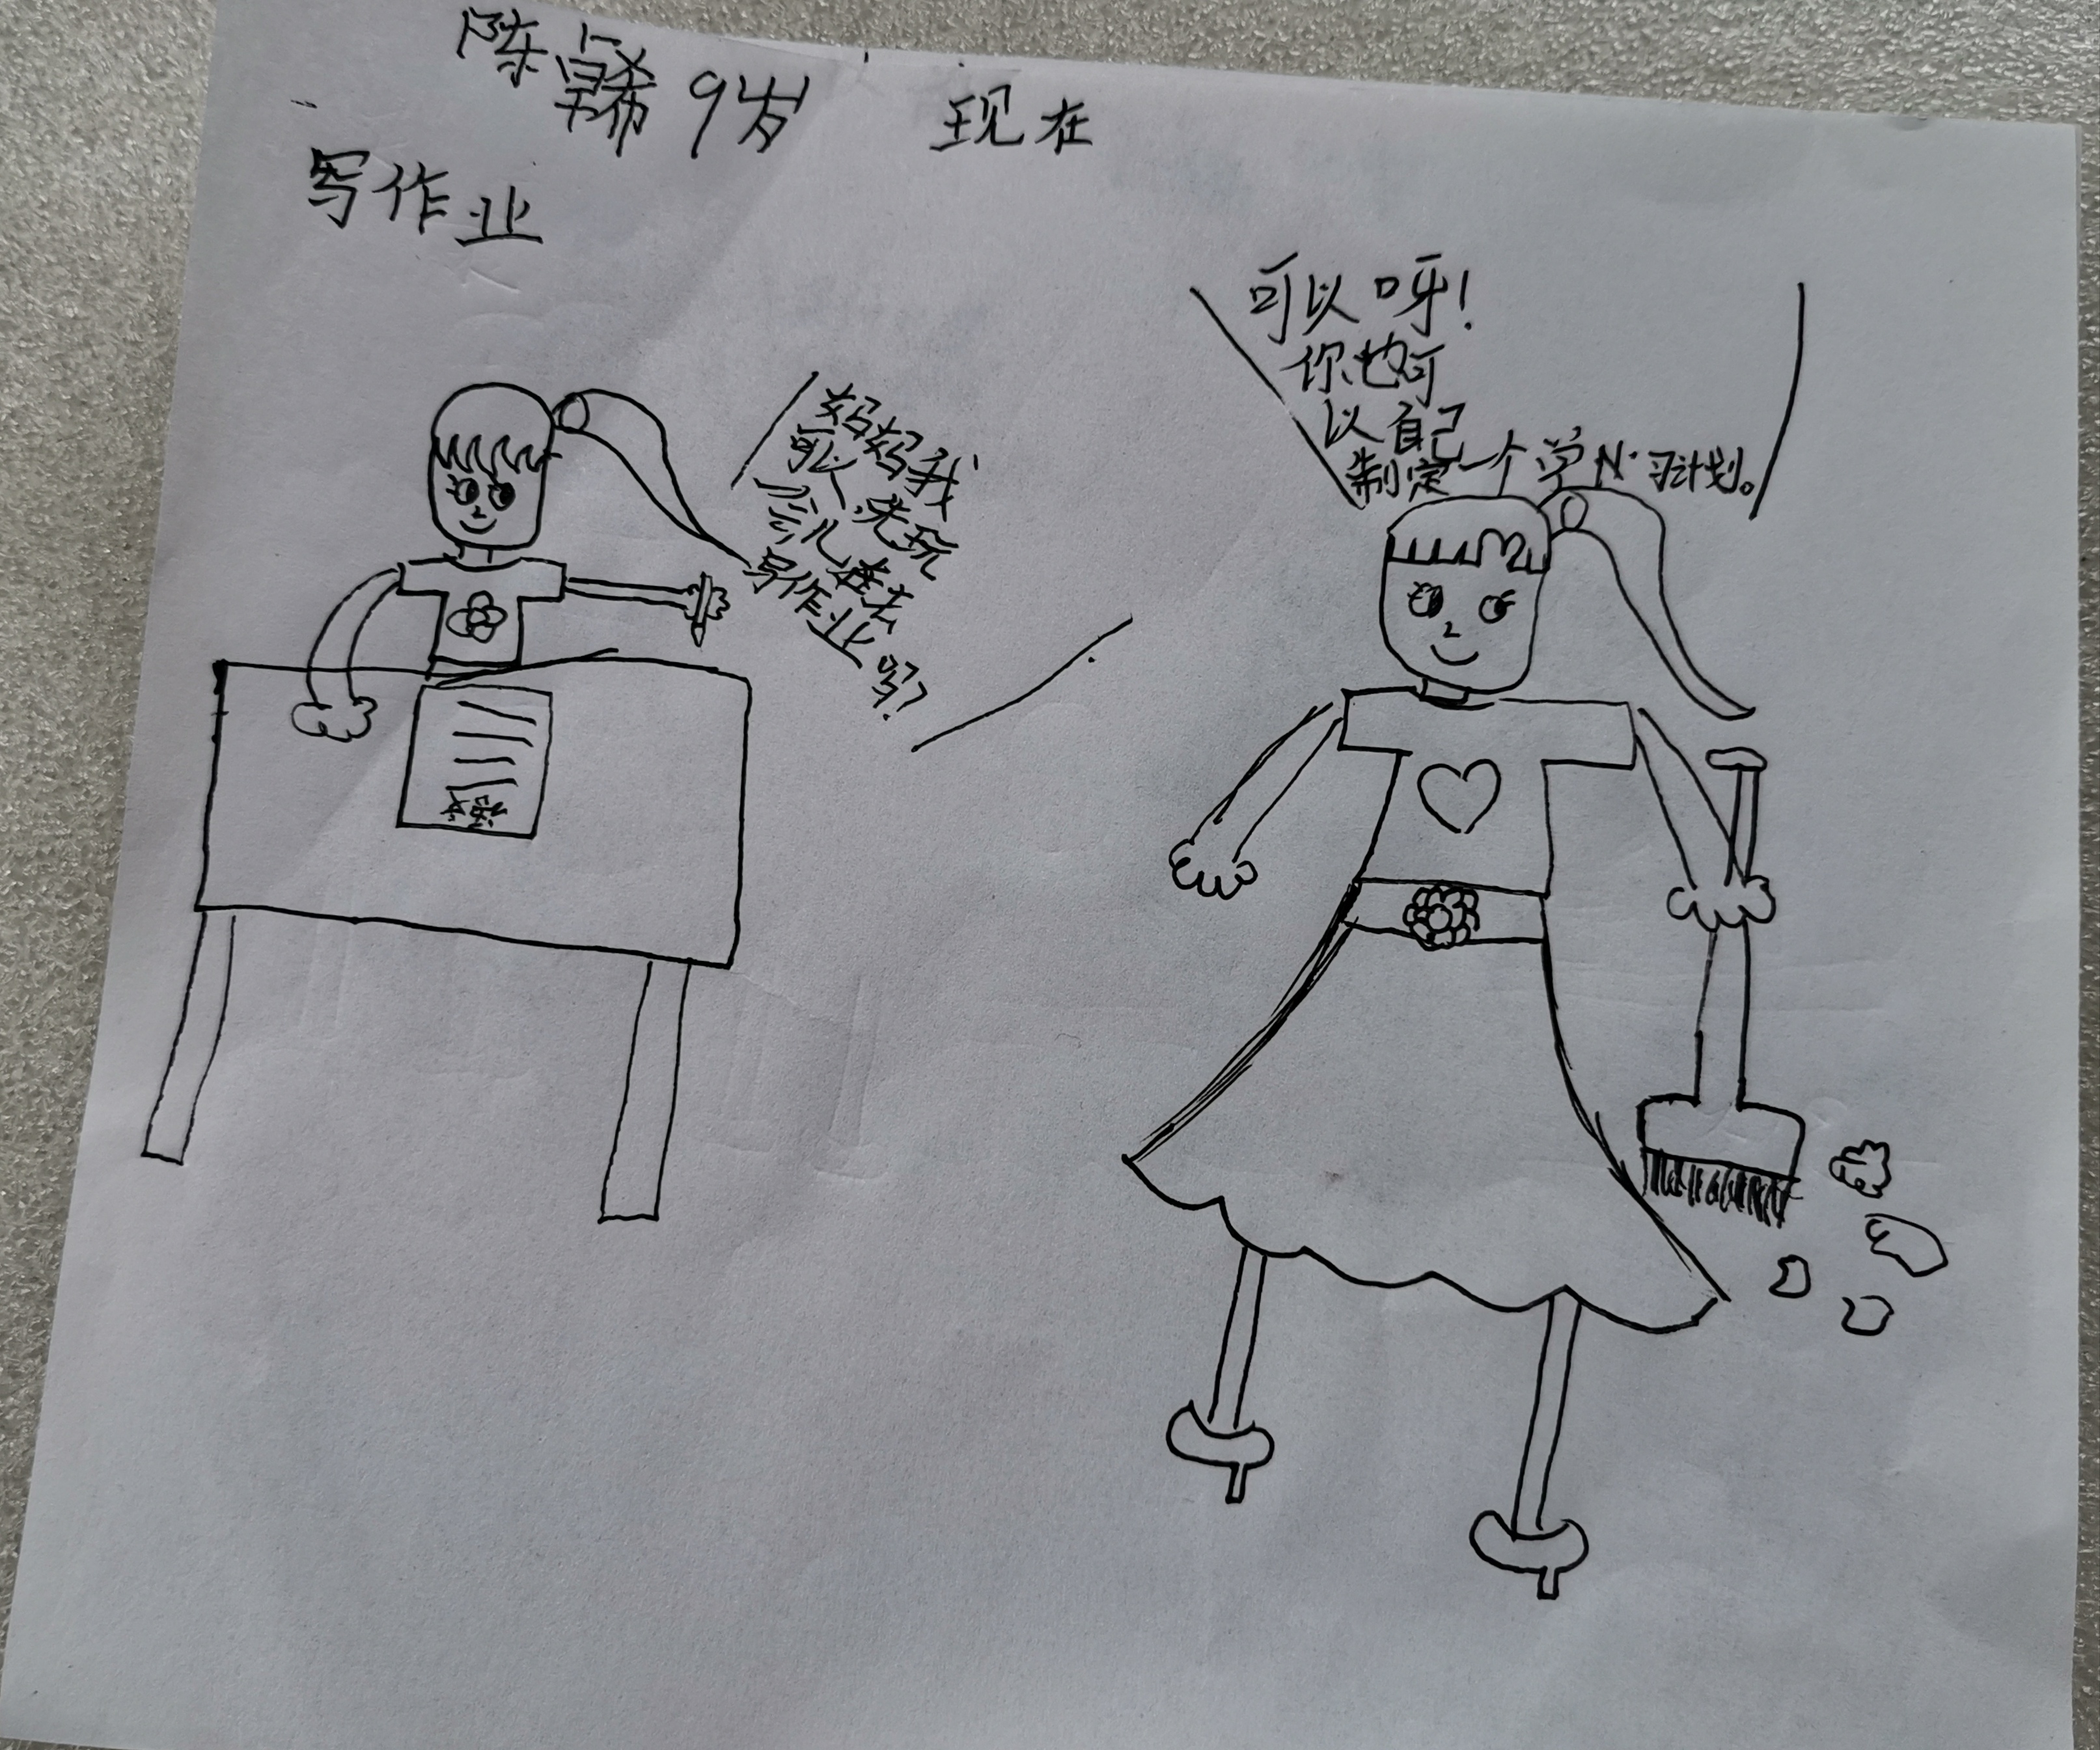 陈 希 9岁 现在
写作业
妈妈我
可以先玩
一会儿在去
写作业吗?
可以呀!
你也可
以自己
制定一个学习计划。